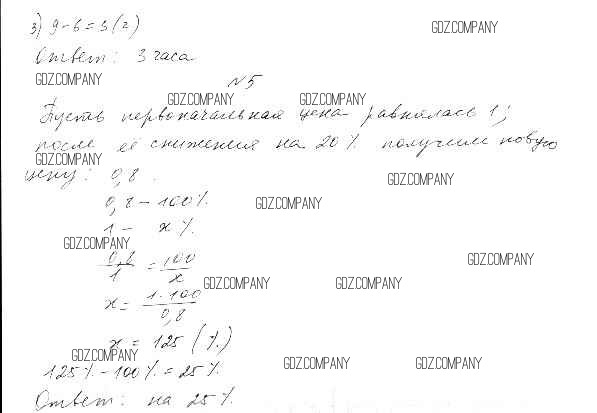 3) 9-6=3(г)
GDZ.COMPANY
Ответ: 3 часа
GDZ.COMPANY
N5
GDZ.COMPANY GDZ.COMPANY
Пусть первоначальная цена равнялась 1;
после её снижения на 20% получили новую
GDZ.COMPANY
цену: 0,8.
GDZ.COMPANY
0,8 - 100%
GDZ.COMPANY
1 - x%
GDZ.COMPANY
0,8/1 = 100/x
GDZ.COMPANY
GDZ.COMPANY GDZ.COMPANY
x = 1·100/0,8
x = 125 (%)
GDZ.COMPANY
125% - 100% = 25%
GDZ.COMPANY GDZ.COMPANY
Ответ: на 25%.